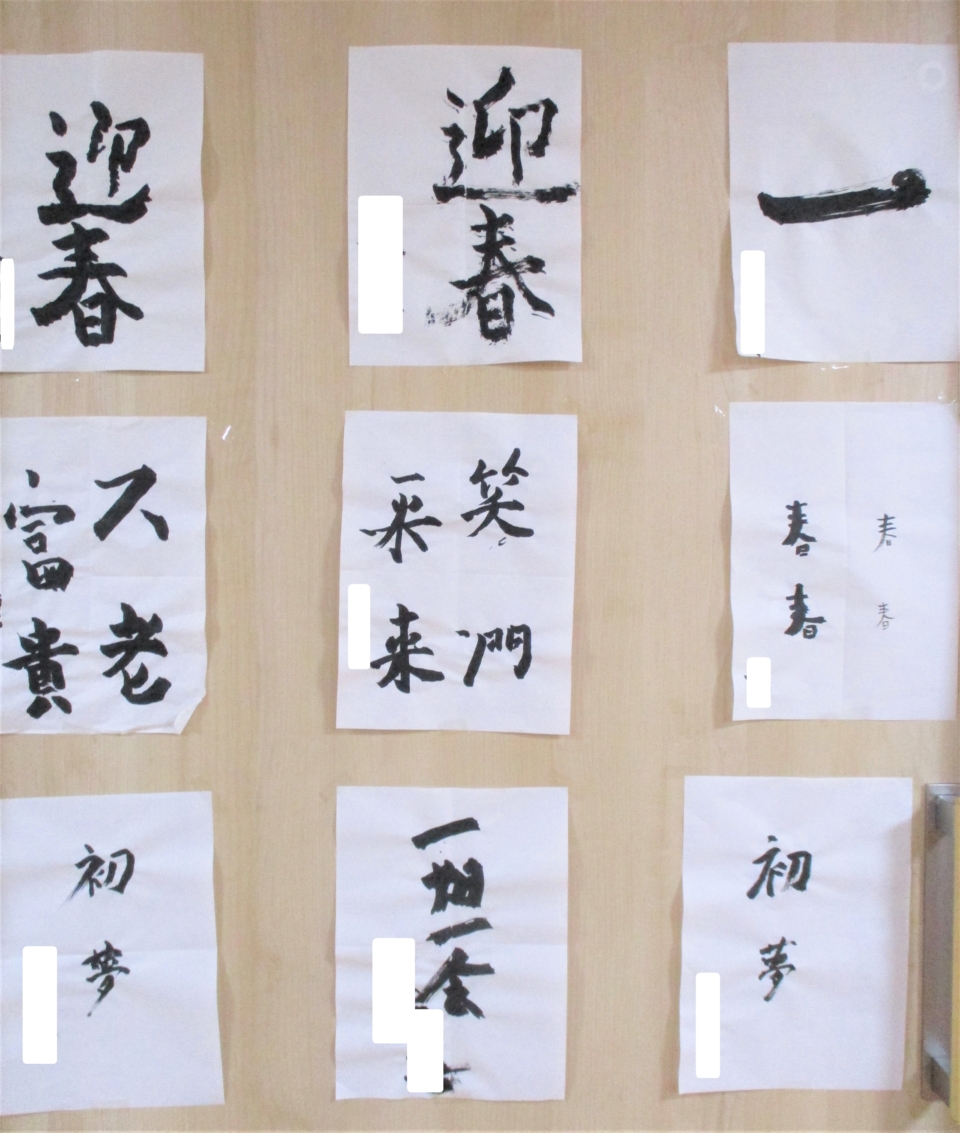 迎春
迎春
一
不老
富貴
笑門
来来
春春
春春
初夢
一期一会
初夢